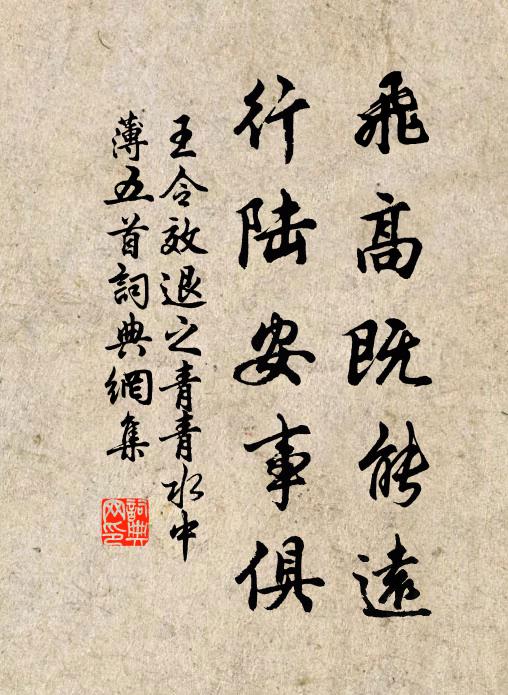 飛高既能遠
行陆安事俱
王令效退之青青水中
薄五首詞典網集
詞典网印